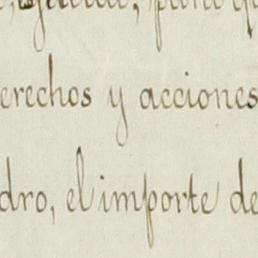 erechos y acciones
dro, el importe de